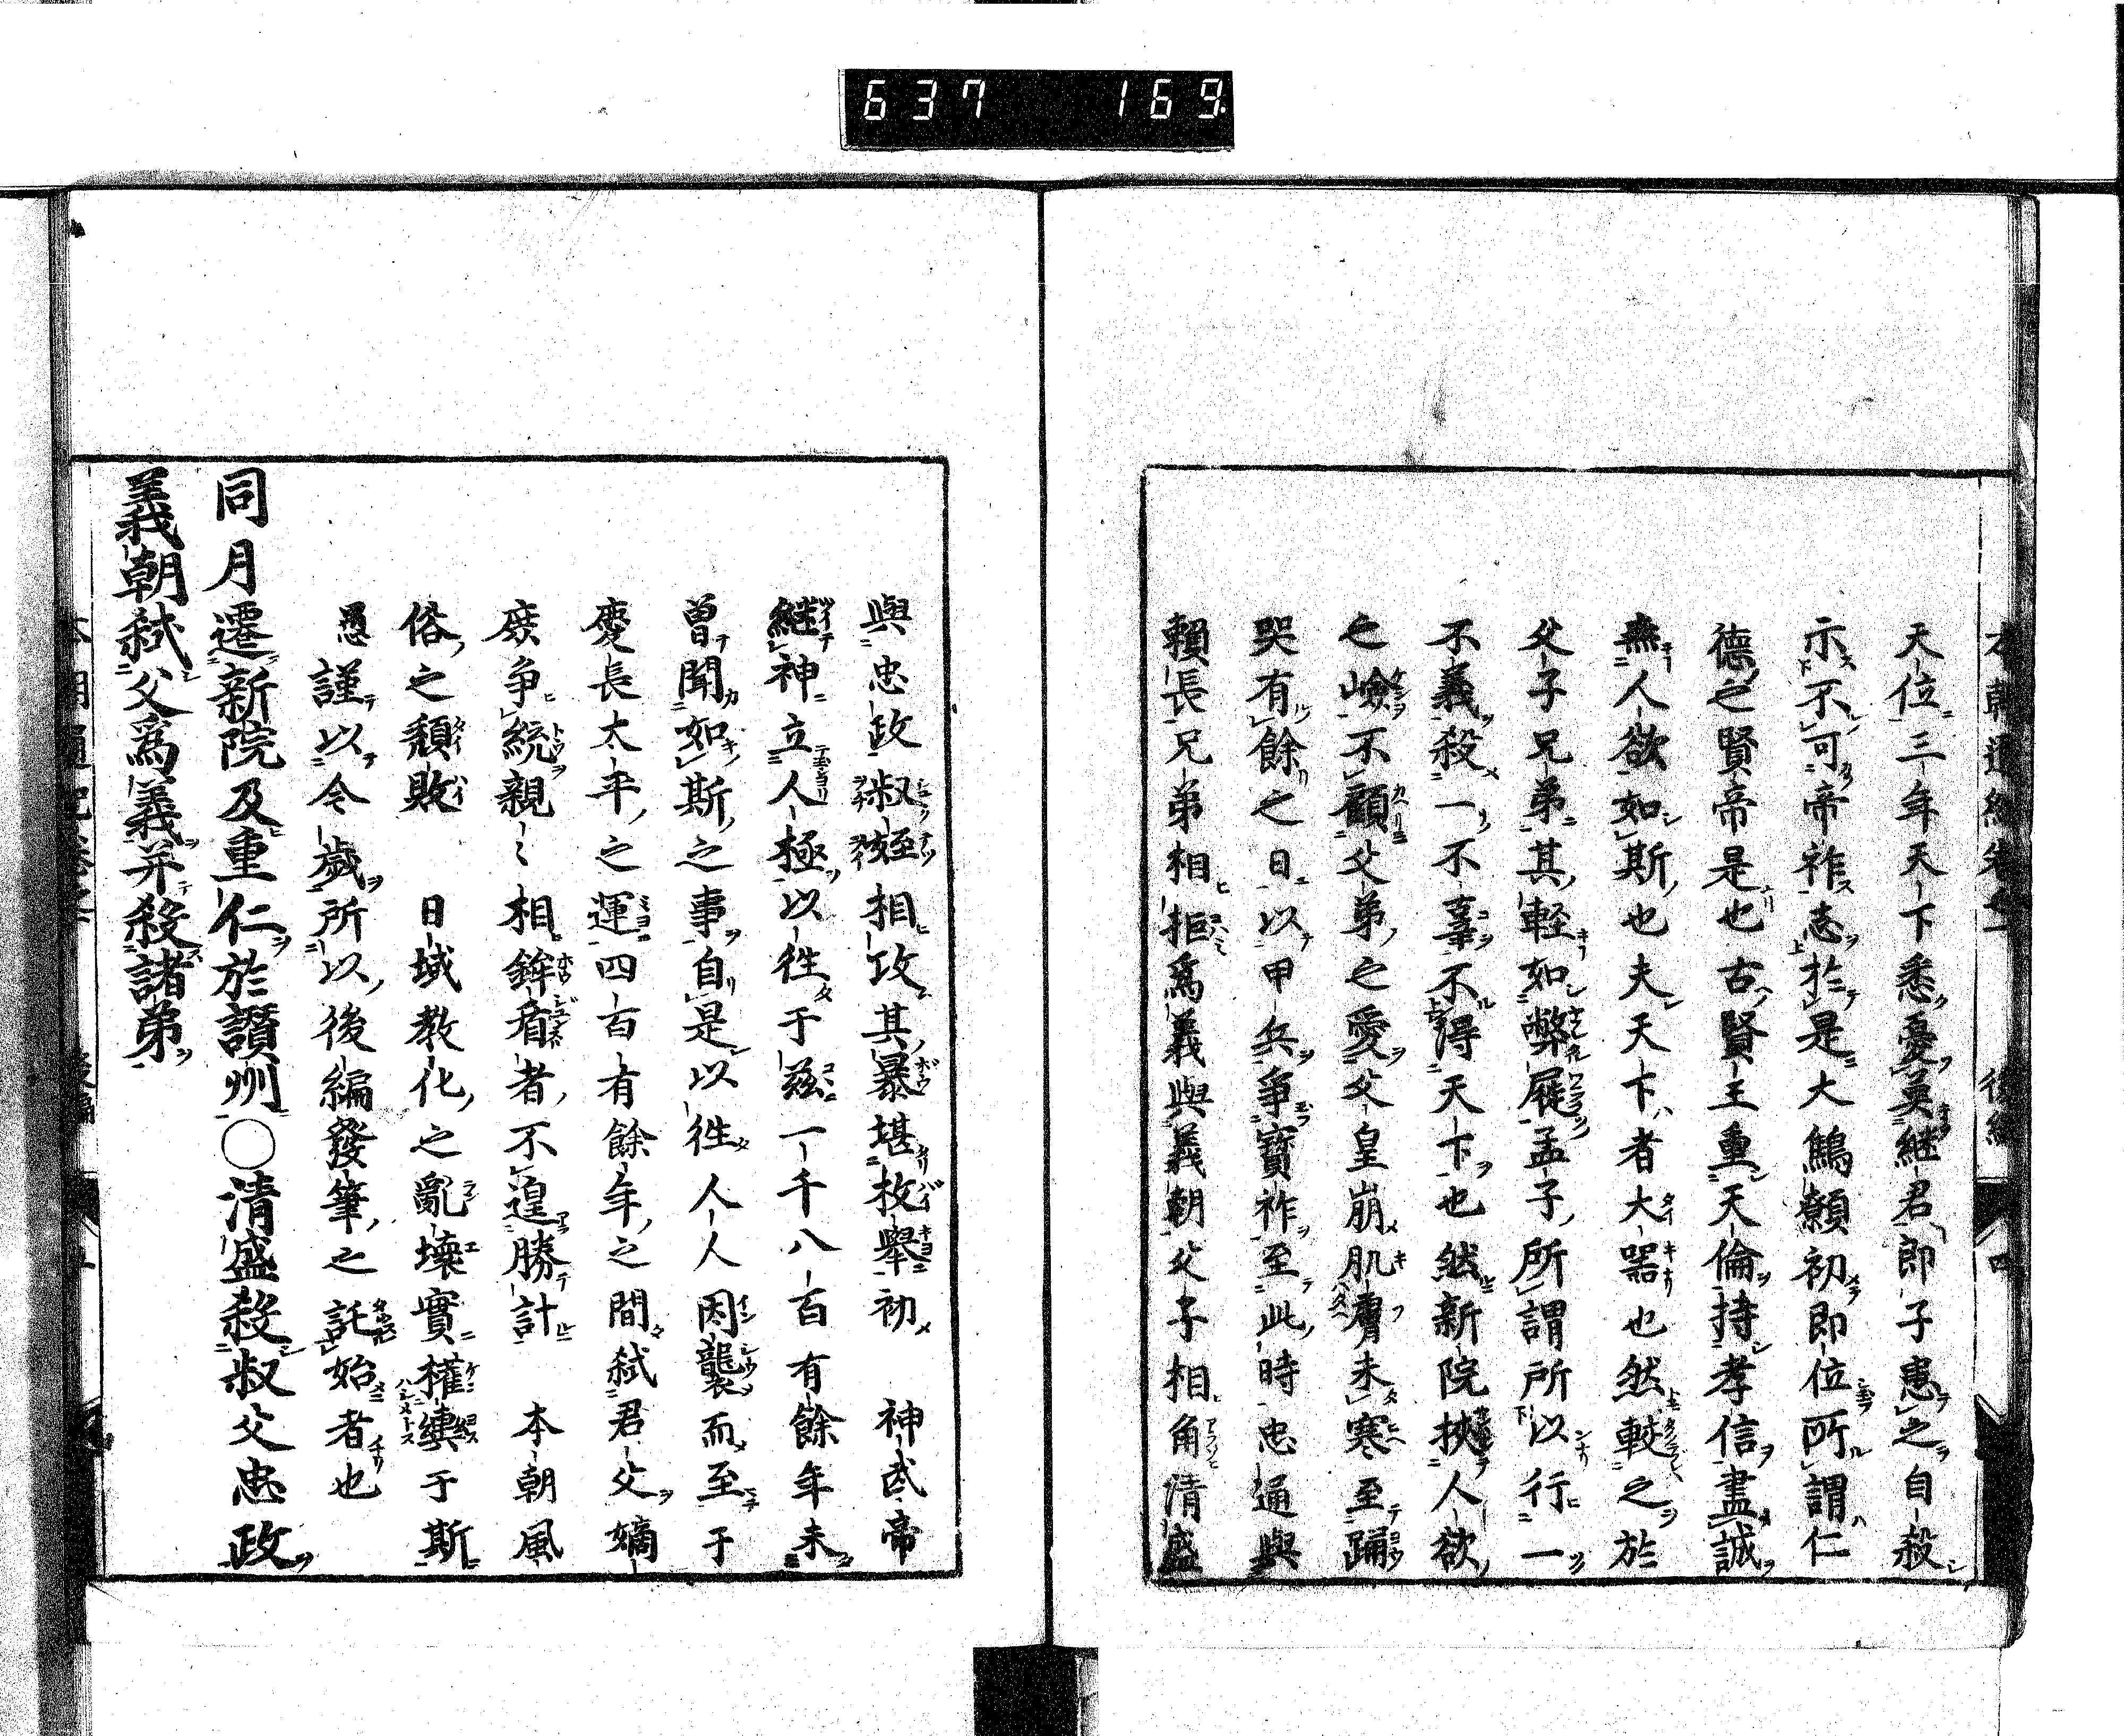 637 169
天位三年天下悉憂莫継君即子患之自殺
示不可帝祚志於是大鷦鷯初即位所謂仁
德之賢帝是也古賢王重天倫持孝信盡誠
無人欲如斯也夫天下者大器也然較之於
父子兄弟其軽如弊屣孟子所謂所以行一
不義殺一不辜不得天下也然新院挾人欲
之嶮不顧父弟之愛父皇崩肌膚未寒至踊
哭有餘之日以甲兵爭寳祚至此時忠通與
頼長兄弟相拒爲義與義朝父子相角清盛
與忠政叔姪相攻其暴堪枚舉初 神武帝
継神立人極以徃于茲一千八百有餘年未
曽聞如斯之事自是以徃人人因襲而至于
慶長太平之運四百有餘年之間弑君父嫡
庶争統親〻相鉾盾者不遑勝計 本朝風
俗之頽敗 日域教化之亂壊實權輿于斯
愚謹以今歲所以後編發筆之託始者也
同月遷新院及重仁於讃州〇清盛殺叔父忠政
義朝弑父爲義并殺諸弟